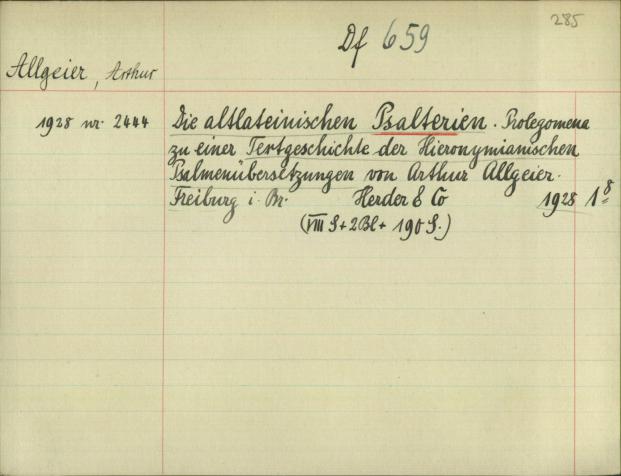 285
Df 659
Allgeier, Arthur
1928 nr. 2444 Die altlateinischen Psalterien. Prolegomena
zu einer Textgeschichte der Hieronymianischen
Psalmenübersetzungen von Arthur Allgeier.
Freiburg i. Br. Herder & Co 1928 1 8
(VIII S + 2 Bl + 190 S.)